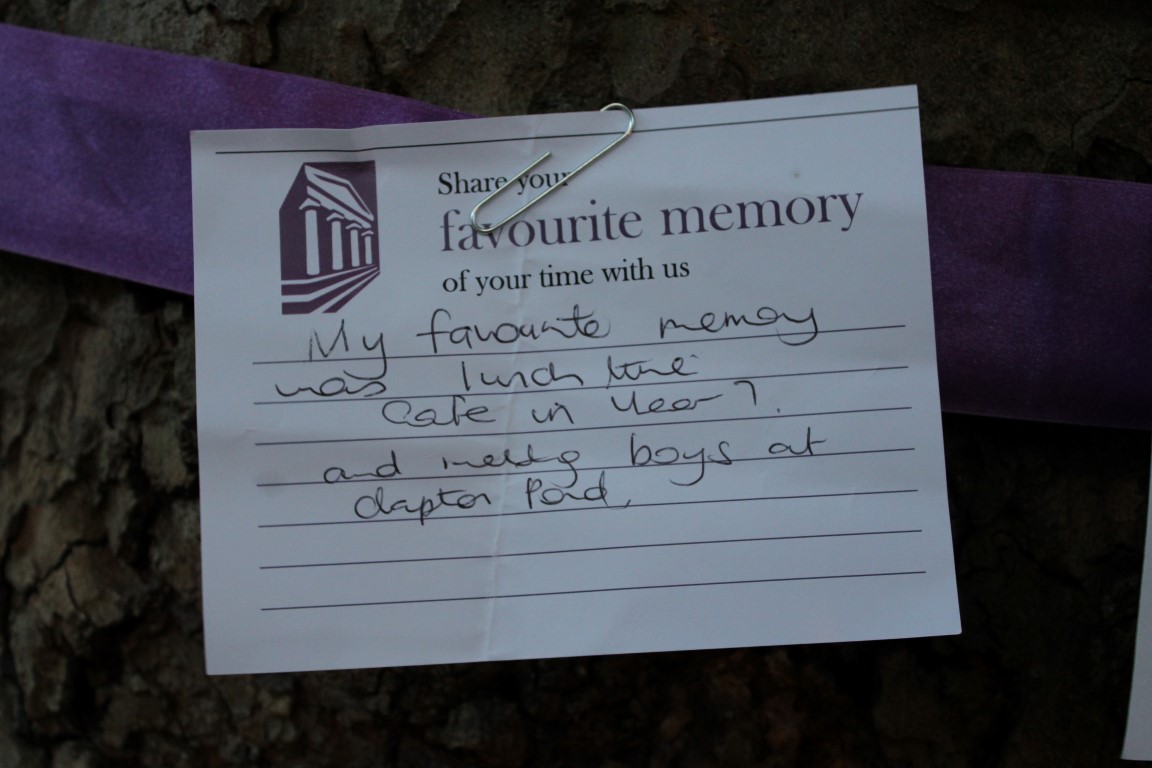 Share your
favourite memory
of your time with us
My favourite memory
was lunch time
Cafe in Year 7.
and meeting boys at
clapton Pond.